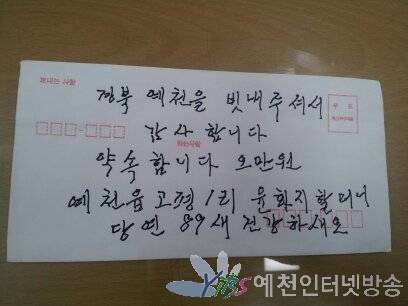 보내는 사람
경북 예천을 빗내주셔서
우 표
감사합니다
받는사람
약속합니다 오만원
예천읍 고평1리 윤화지할머니
당연 89세 건강하세요
YIBS 예천인터넷방송